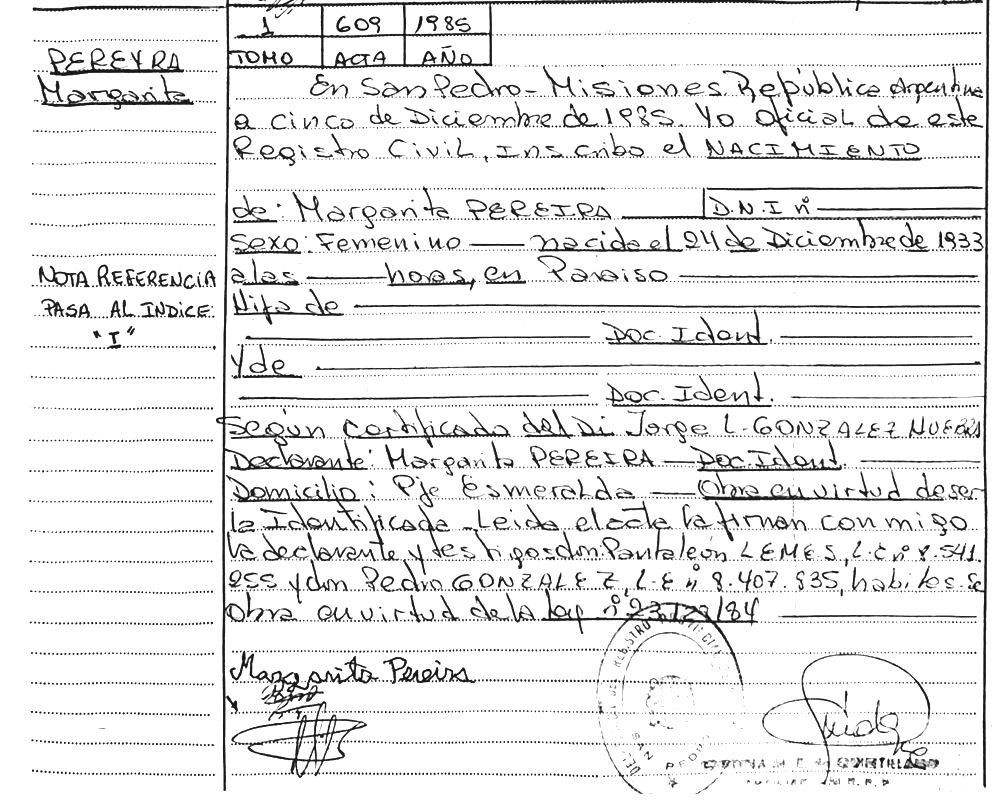 1 609 1985
TOMO ACTA AÑO
PEREYRA
Margarita
En San Pedro - Misiones República Argentina
a cinco de Diciembre de 1985. Yo Oficial de este
Registro Civil, Inscribo el NACIMIENTO
de: Margarita PEREIRA D.N.I nº
sexo: Femenino nacida el 24 de Diciembre de 1933
a las horas, en Paraiso
NOTA REFERENCIA
PASA AL INDICE
"I"
Hija de
Doc. Ident.
Y de
Doc. Ident.
Según certificado del Dr Jorge L. GONZALEZ
Declarante: Margarita PEREIRA Doc. Ident.
Domicilio: Pje Esmeralda Obra en virtud de ser
la Identificada - Leida el acta la firman conmigo
la declarante y testigos don Pantaleón LEMES, L.E nº 8.541.
255 y don Pedro GONZALEZ, L.E nº 8.407.835, habiles. Se
Obra en virtud de la ley nº
Margarita Pereira
SAN PEDRO